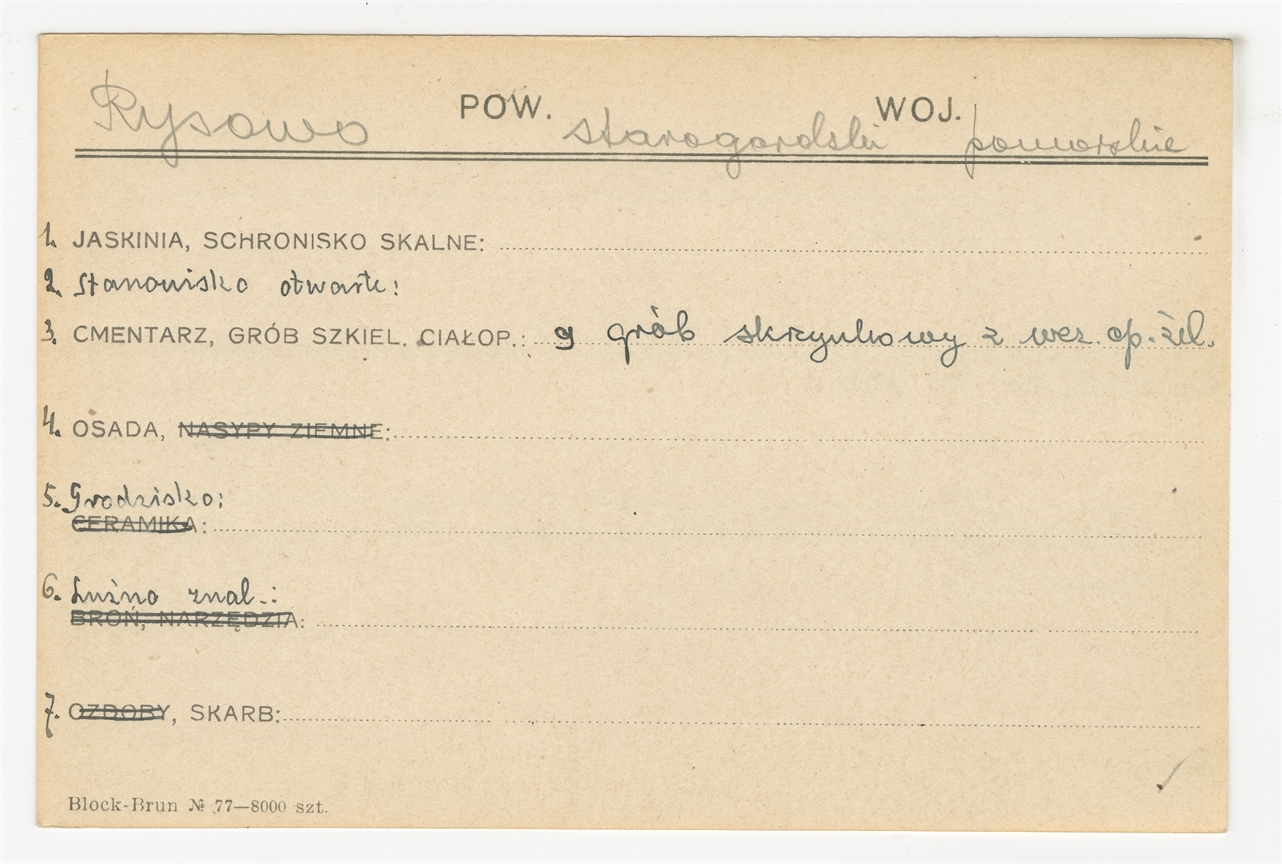 Rysowo POW. starogardski WOJ. pomorskie
1. JASKINIA, SCHRONISKO SKALNE:
2. Stanowisko otwarte:
3. CMENTARZ, GRÓB SZKIEL. CIAŁOP.: g grób skrzynkowy z wcz. ep. żel.
4. OSADA, NASYPY ZIEMNE:
5. Grodzisko:
CERAMIKA:
6. Luźno znal.:
BROŃ, NARZĘDZIA:
7. OZDOBY, SKARB:
Block-Brun № 77—8000 szt.